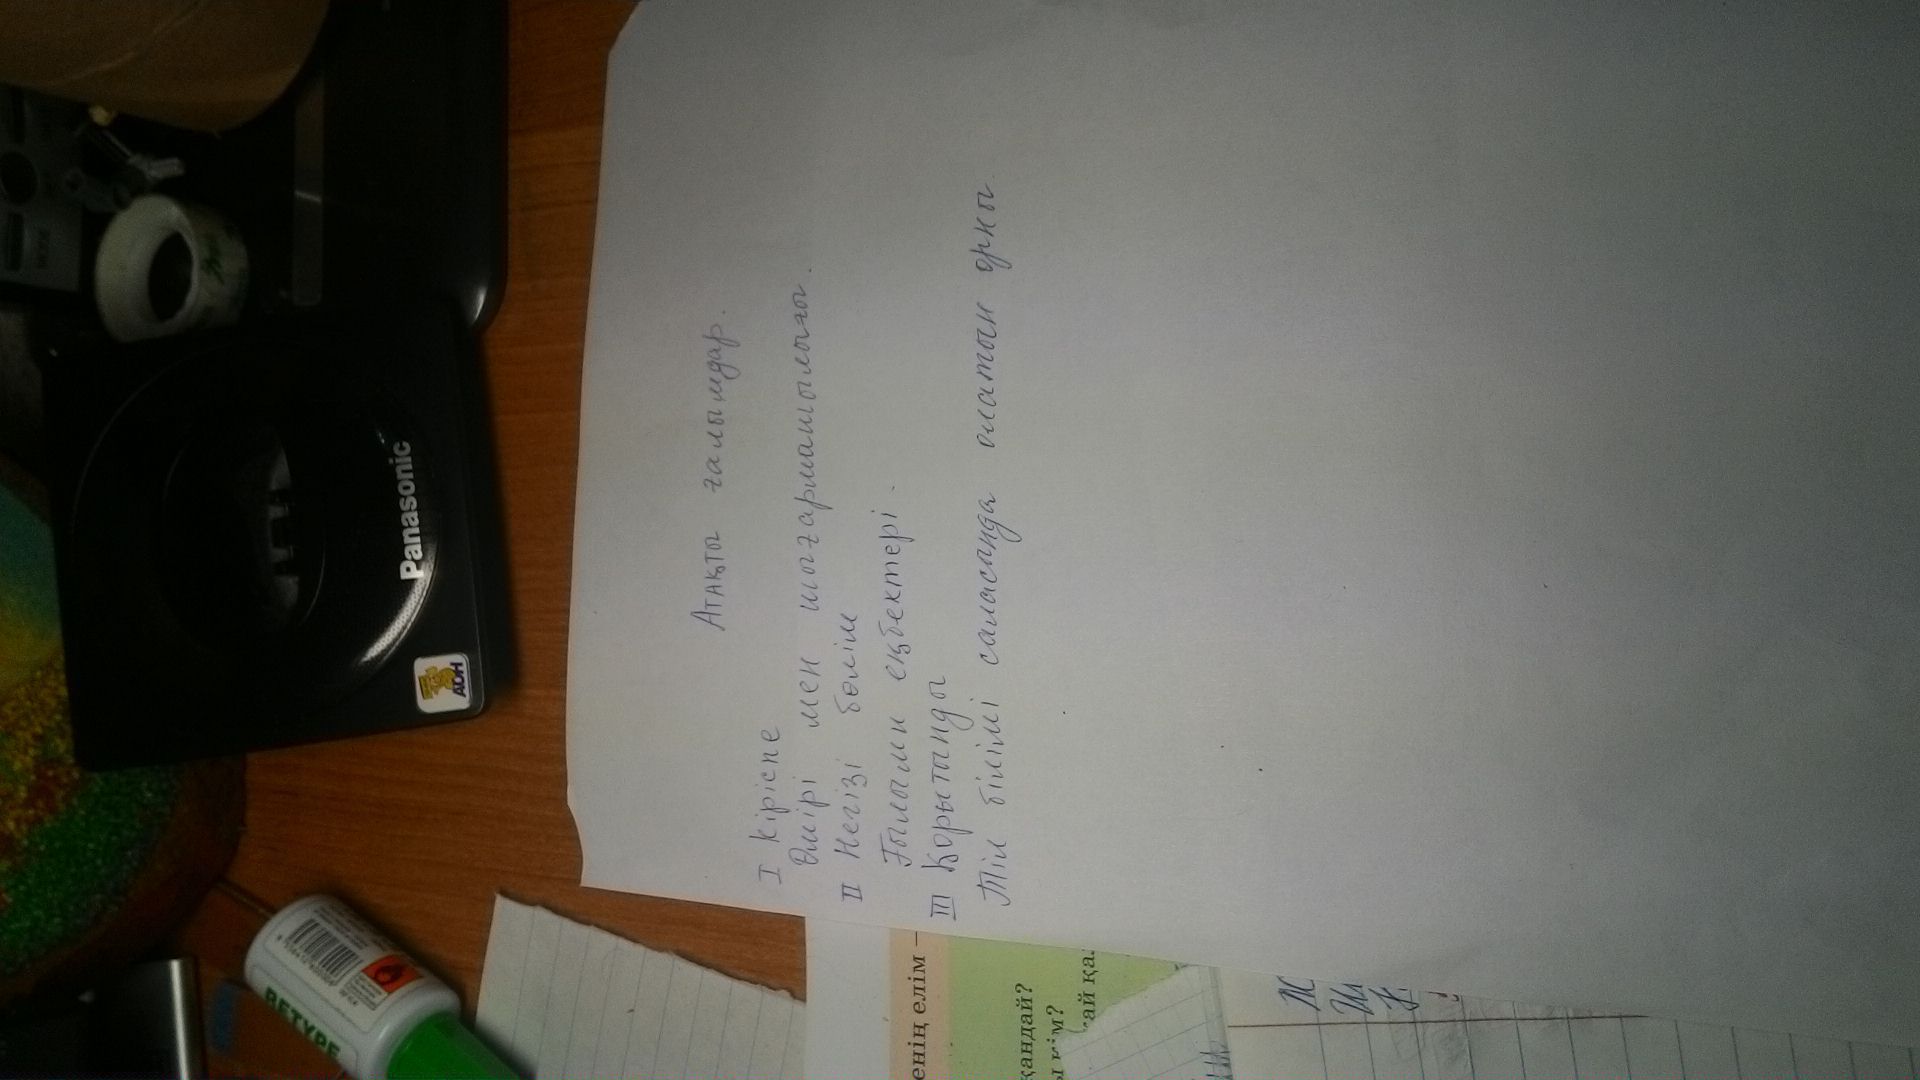 Атақты ғалымдар.
I Кіріспе
Өмірі мен шығармашылығы.
II Негізі бөлім
Ғылыми еңбектері.
III Қорытынды
Тіл білімі саласында алатын орны.
Panasonic
АОН
RETYPE
енің елім –
қандай?
кім?
ай қа